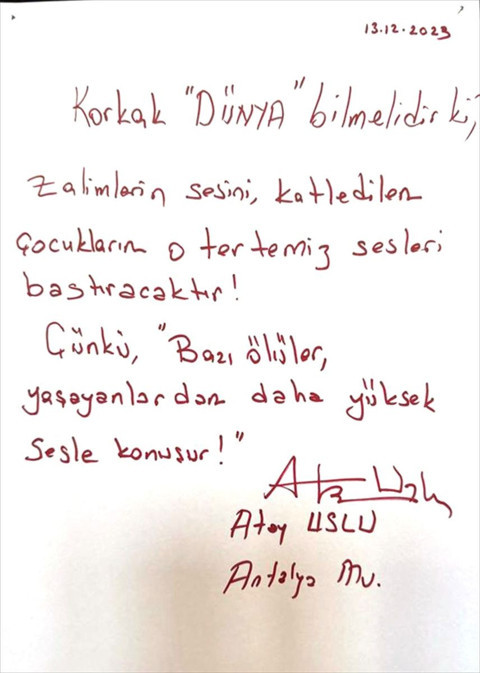 13.12.2023
Korkak "DÜNYA" bilmelidir ki,
Zalimlerin sesini, katledilen
çocukların o tertemiz sesleri
bastıracaktır!
Çünkü, "Bazı ölüler,
yaşayanlardan daha yüksek
sesle konuşur!"
Atay USLU
Antalya Mv.